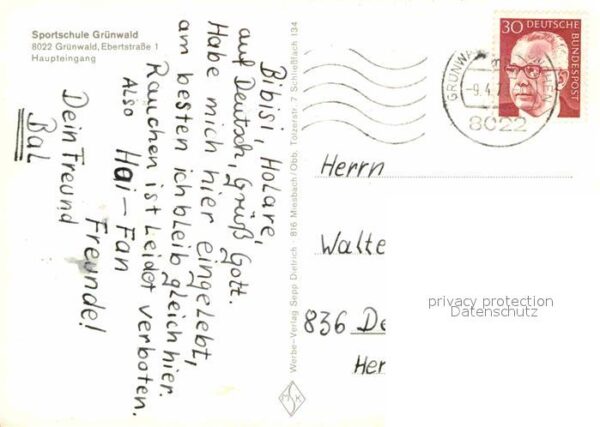 Sportschule Grünwald
8022 Grünwald, Ebertstraße 1
Haupteingang
Bibisi, Holare,
auf Deutsch, Grüß Gott.
Habe mich hier eingelebt,
am besten ich bleib gleich hier.
Rauchen ist Leider verboten.
Also Hai-Fan
Freunde!
Dein Freund
Bal
Werbe-Verlag Sepp Dietrich - 816 Miesbach/Obb. Tölzerstr. 7 Schließfach 134
30 DEUTSCHE
BUNDESPOST
-9.4.7
8022
Herrn
Walte
836 De
Her
privacy protection
Datenschutz